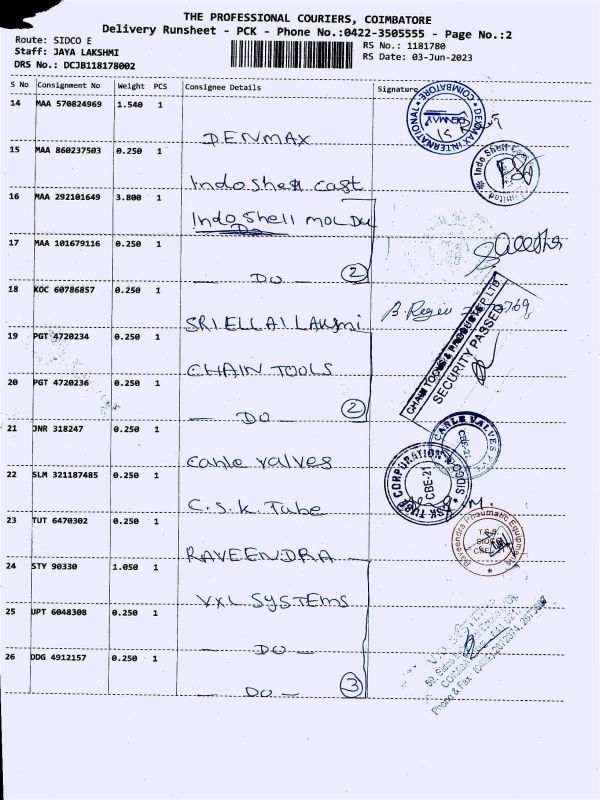 THE PROFESSIONAL COURIERS, COIMBATORE
Delivery Runsheet - PCK - Phone No.:0422-3505555 - Page No.:2
Route: SIDCO E
RS No.: 1181780
Staff: JAYA LAKSHMI
RS Date: 03-Jun-2023
DRS No.: DCJB118178002
S No Consignment No Weight PCS Consignee Details Signature
14 MAA 570824969 1.540 1 DENMAX
DENMAX INTERNATIONAL * COIMBATORE *
15 MAA 860237503 0.250 1 Indo shell cast
Indo Shell
16 MAA 292101649 3.800 1 Indo shell MOLDU
Do
17 MAA 101679116 0.250 1 — DO — 2
18 KOC 60786857 0.250 1 SRI ELLAI LAKSMI
19 PGT 4720234 0.250 1 CHAIN TOOLS
CHAIN TOOLS & PRODUCTS P LTD
SECURITY PASSED
20 PGT 4720236 0.250 1 — DO — 2
21 JNR 318247 0.250 1 Carle valves
CARLE VALVES
CBE-21
22 SLM 321187485 0.250 1 C.S.K Tube
CSK TUBE CORPORATION
CBE-21
23 TUT 6470302 0.250 1 RAVEENDRA
Raveendra Pneumatic Equipments
24 STY 90330 1.050 1 VXL SYSTEMS
25 UPT 6048308 0.250 1 — DO —
26 DDG 4912157 0.250 1 — DO — 3
Phone & Fax